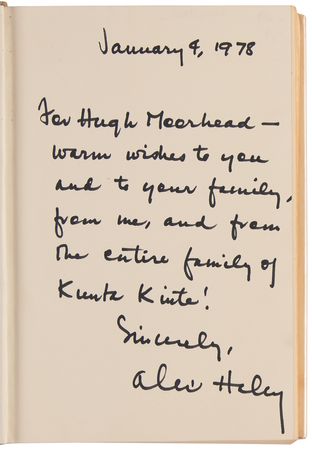 January 4, 1978
For Hugh Moorhead —
warm wishes to you
and to your family,
from me, and from
the entire family of
Kunta Kinte!
Sincerely,
Alex Haley